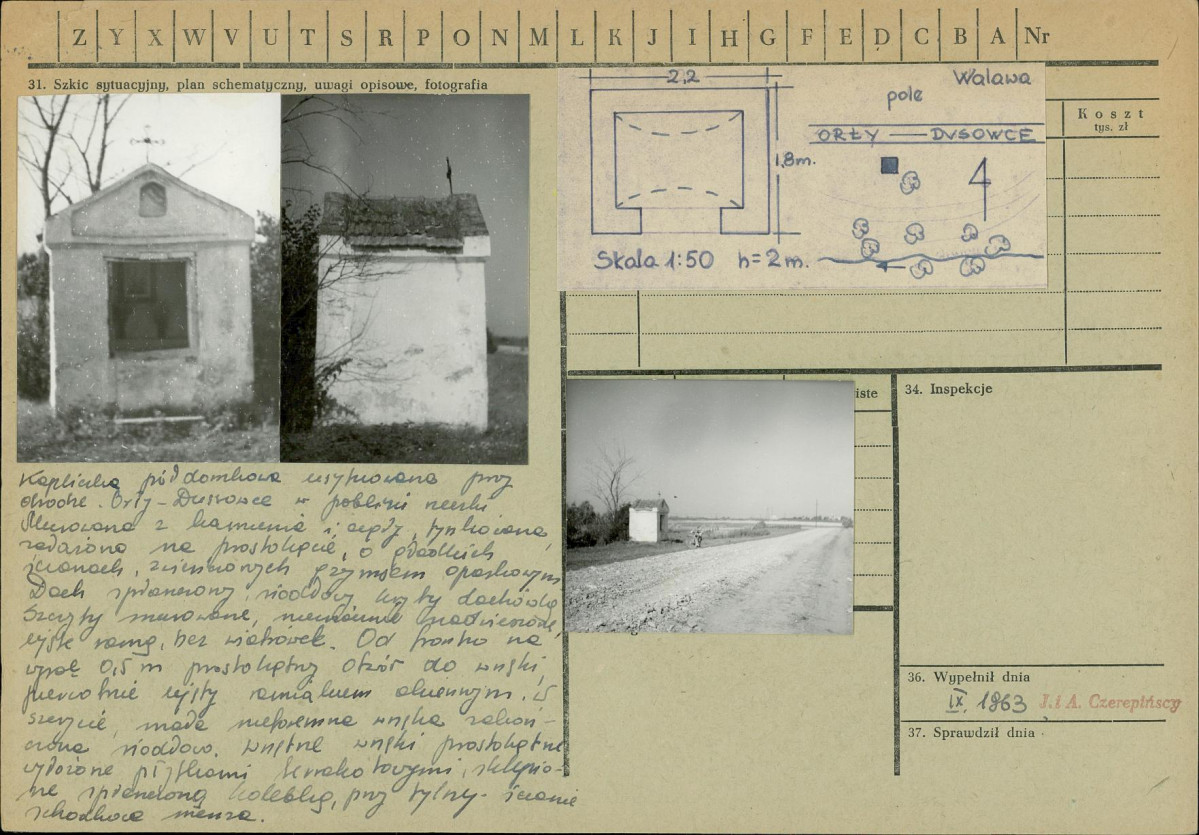 Z Y X W V U T S R P O N M L K J I H G F E D C B A Nr
31. Szkic sytuacyjny, plan schematyczny, uwagi opisowe, fotografia
2,2
1,8m.
Skala 1:50 h=2m.
Walawa
pole
ORŁY — DUSOWCE
Koszt
tys. zł
iste
34. Inspekcje
Kapliczka półdomkowa usytuowana przy
drodze Orły-Dussowce w pobliżu rzeki
Murowana z kamienia i cegły, tynkowana,
założona na prostokącie, o gładkich
ścianach, zwieńczonych gzymsem opaskowym
Dach spłaszczony, siodłowy kryty dachówką
Szczyty murowane, nieznacznie nadwieszone,
ujęte ramą, bez wiatrówek. Od frontu na
wys. 0,5 m prostokątny otwór do wnęki,
pierwotnie ujęty ramiakiem okiennym. W
szczycie, mała niekremna wnęka zakoń-
czona siodłowo. Wnętrze wnęki prostokątne
wyłożone płytkami terrakotowymi, sklepio-
ne spłaszczoną kolebką, przy tylnej ścianie
schodkowa mensa.
36. Wypełnił dnia
IX. 1963 J. i A. Czerepińscy
37. Sprawdził dnia